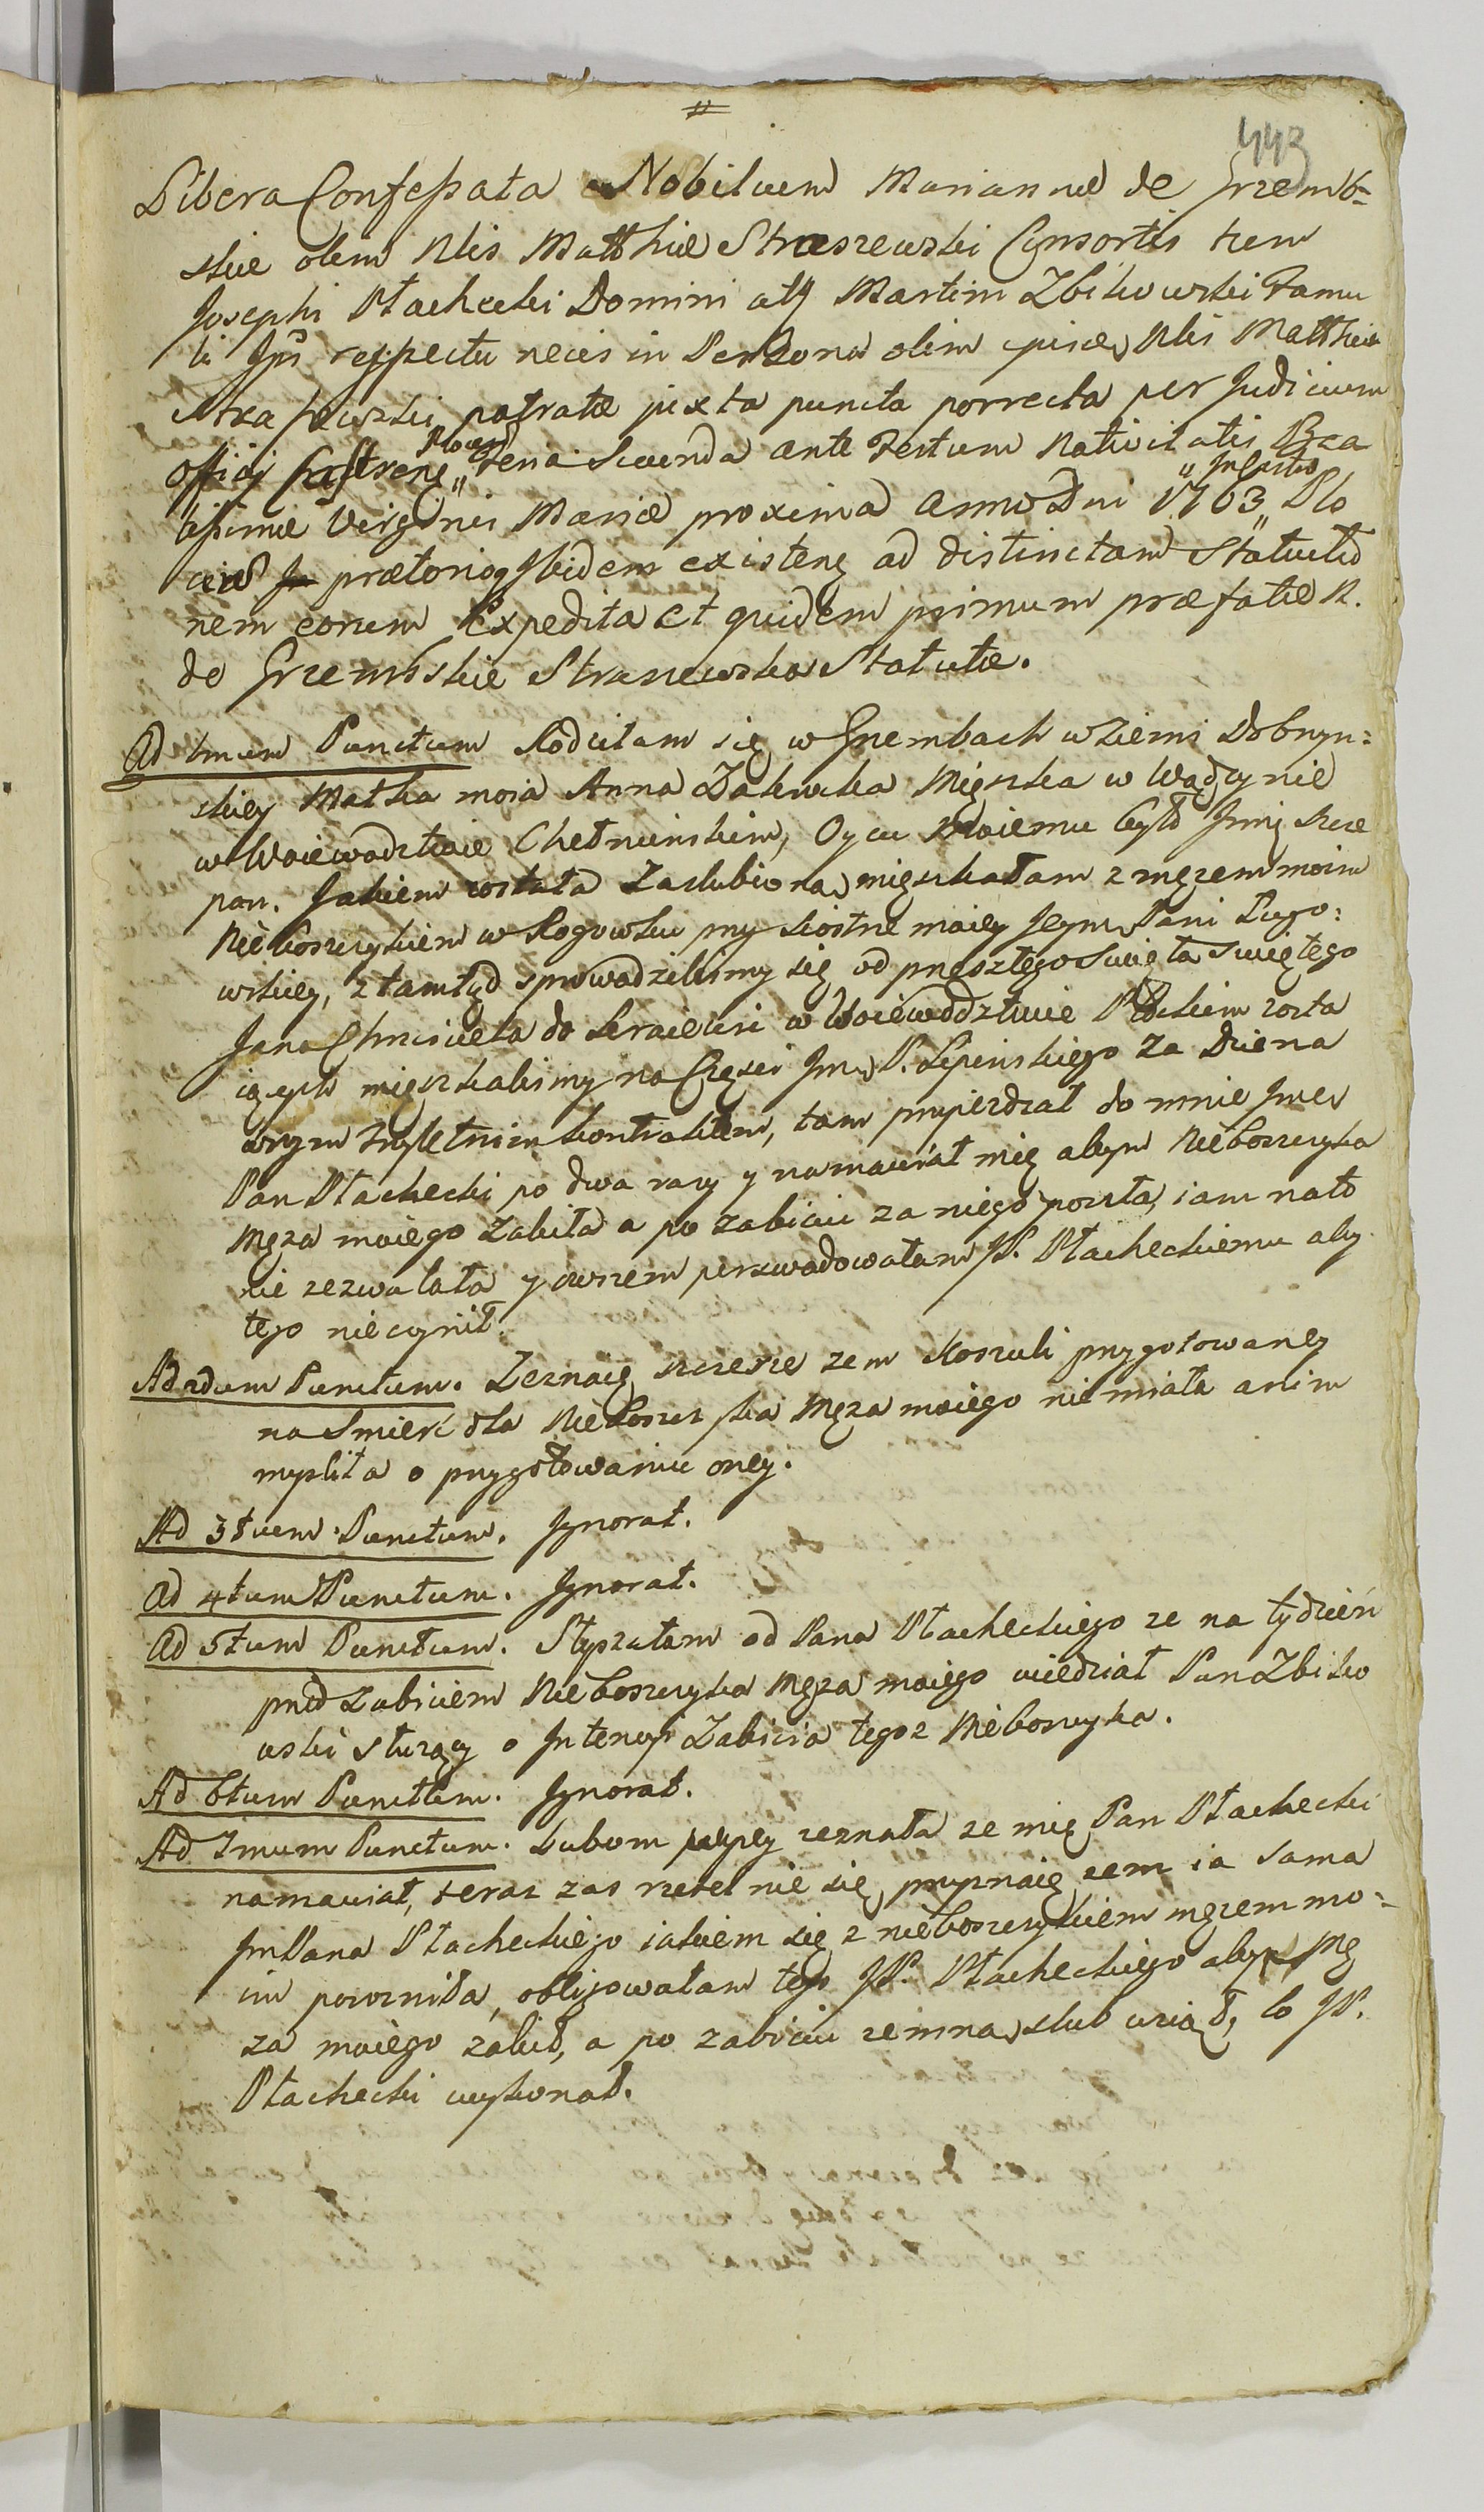 443
Libera Confessata Nobilium Mariannæ de Grzemb=
skie olim Nlis Matthiæ Straszewski Consortis tum
Josephi Płachecki Domini atq Martini Zbikowski Famu
li Ips respectu necis in Persona olim Nlis Matthiæ
Straszewski patratæ juxta puncta porrecta per Judicium
Officij Castrens Plocen Feria Secunda ante Festum Nativitatis Bea
tissimæ Virginis Mariæ proxima Anno Dni 1763 In Castro Plo
prætoriog Ibidem existens ad distinctam Statuitio
nem eorum Expedita Et quidem primum præfatæ N.
de Grzembskie Straszewska Statutæ.
Ad 1mum Punctum Rodziłam się w Grzembach w Ziemi Dobrzyn=
skiey Matka moia Anna Zalewska Mięszka w Wądzynie
w Woiewodztwie Chełminskim, Oycu moiemu było Imię Szcze
pan. Jakiem została Zaslubiona, mięszkałam z męzem moim
Nieboszczykiem w Rogowku przy siostrze moiey Jeym Pani Rugo=
wskiey, ztamtąd sprowadzilismy się od przeszłego Swięta Swiętego
Jana Chrzciciela do w Woiewodztwie Płockim zosta
iących mięszkalismy na Częsci Jmci P. Lipinskiego Za Dzierza
wnym Trzyletnim kontraktem, tam przyiezdzał do mnie Jmci
Pan Płachecki po dwa razy y namawiał mię abym Nieboszczyka
Męza moiego Zabiła a po zabiciu za niego poszła, iam nato
nie zezwalała y owszem perswadowałam JP. Płacheckiemu aby
tego nieczynił.
Ad 2dum Punctum. Zeznaię szczerze zem Koszuli przygotowaney
na Smierć dla Nieboszczyka Męza moiego niemiała anim
myslila o przygotowaniu oney.
Ad 3tium Punctum. Ignorat.
Ad 4tum Punctum. Ignorat.
Ad 5tum Punctum. Słyszałam od Pana Płacheckiego ze na tydzień
przed Zabiciem Nieboszczyka Męza moiego wiedział Pan Zbiko
wski służący o Intencyi Zabicia tegoz Nieboszczyka.
Ad 6tum Punctum. Ignorat.
Ad 7mum Punctum. Lubom wyzey zeznała ze mię Pan Płachecki
namawiał, teraz zas rzetelnie się przyznaię zem ia sama
Jm Pana Płacheckiego iakiem się z nieboszczykiem męzem mo=
im powazniła, obligowałam tego JP. Płacheckiego aby Mę
za moiego zabił, a po zabiciu zemną slub wziął, co JP.
Płachecki wykonał.